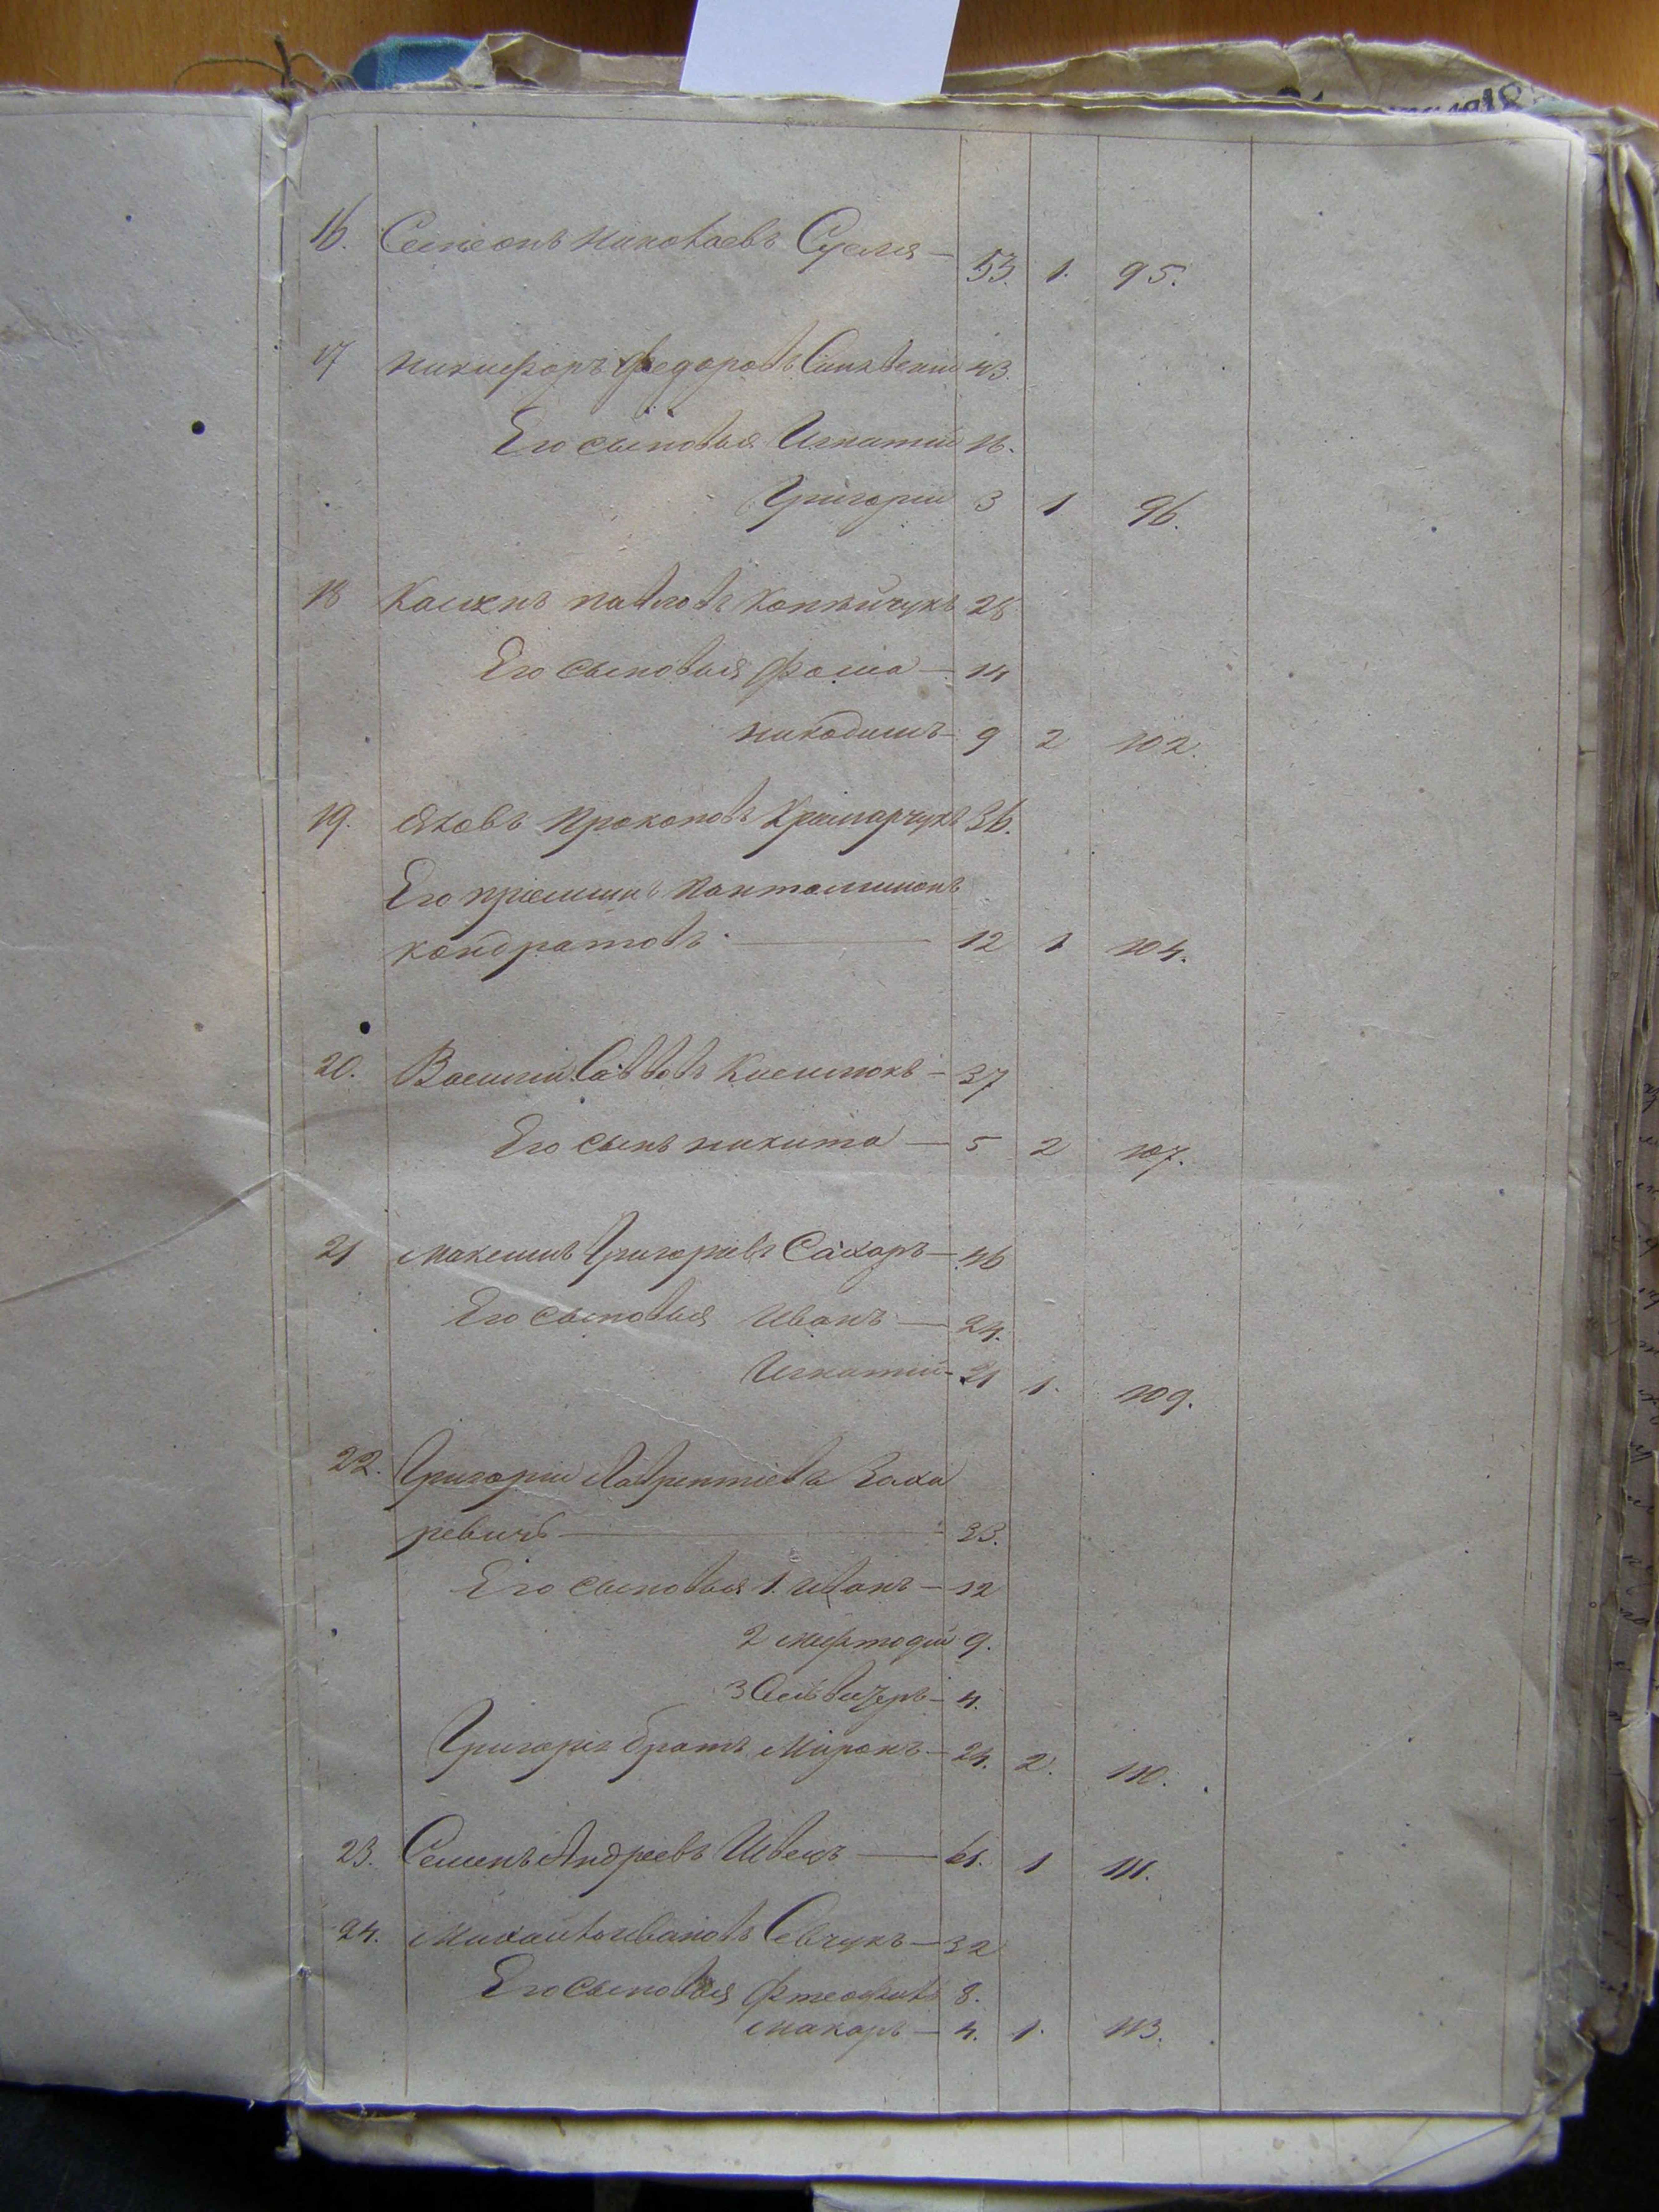 16. Семеонъ Николаевъ Сусля — 53. 1. 95.
17 Никифоръ Федоровъ Синявский 43.
Его сыновья Игнатий 16.
Григорий 3 1 96.
18 Касиянъ Павловъ Копѣйчукъ 28
Его сыновья Фома — 14
Никодимъ — 9 2 102.
19. Яковъ Прокоповъ Крамарчукъ 36.
Его приемышъ Пантелимонъ
Кондратовъ — 12 1 104.
20. Василий Саввовъ — 37
Его сынъ Никита — 5 2 107.
21 Максимъ Григориевъ Сахаръ — 46
Его сыновья Иванъ — 24.
Игнатий — 21 1. 109.
22. Григорий Лаврентиевъ Заха
ревичъ — 33.
Его сыновья 1. Иванъ — 12
2 Мефтодий 9.
3 — 4.
Григория братъ Миронъ — 24. 2. 110.
23. Семенъ Андреевъ Швецъ — 61. 1 111.
24. Михаилъ Ивановъ Севчукъ — 32
Его сыновья Фтеофилъ 8.
Макаръ — 4. 1. 113.